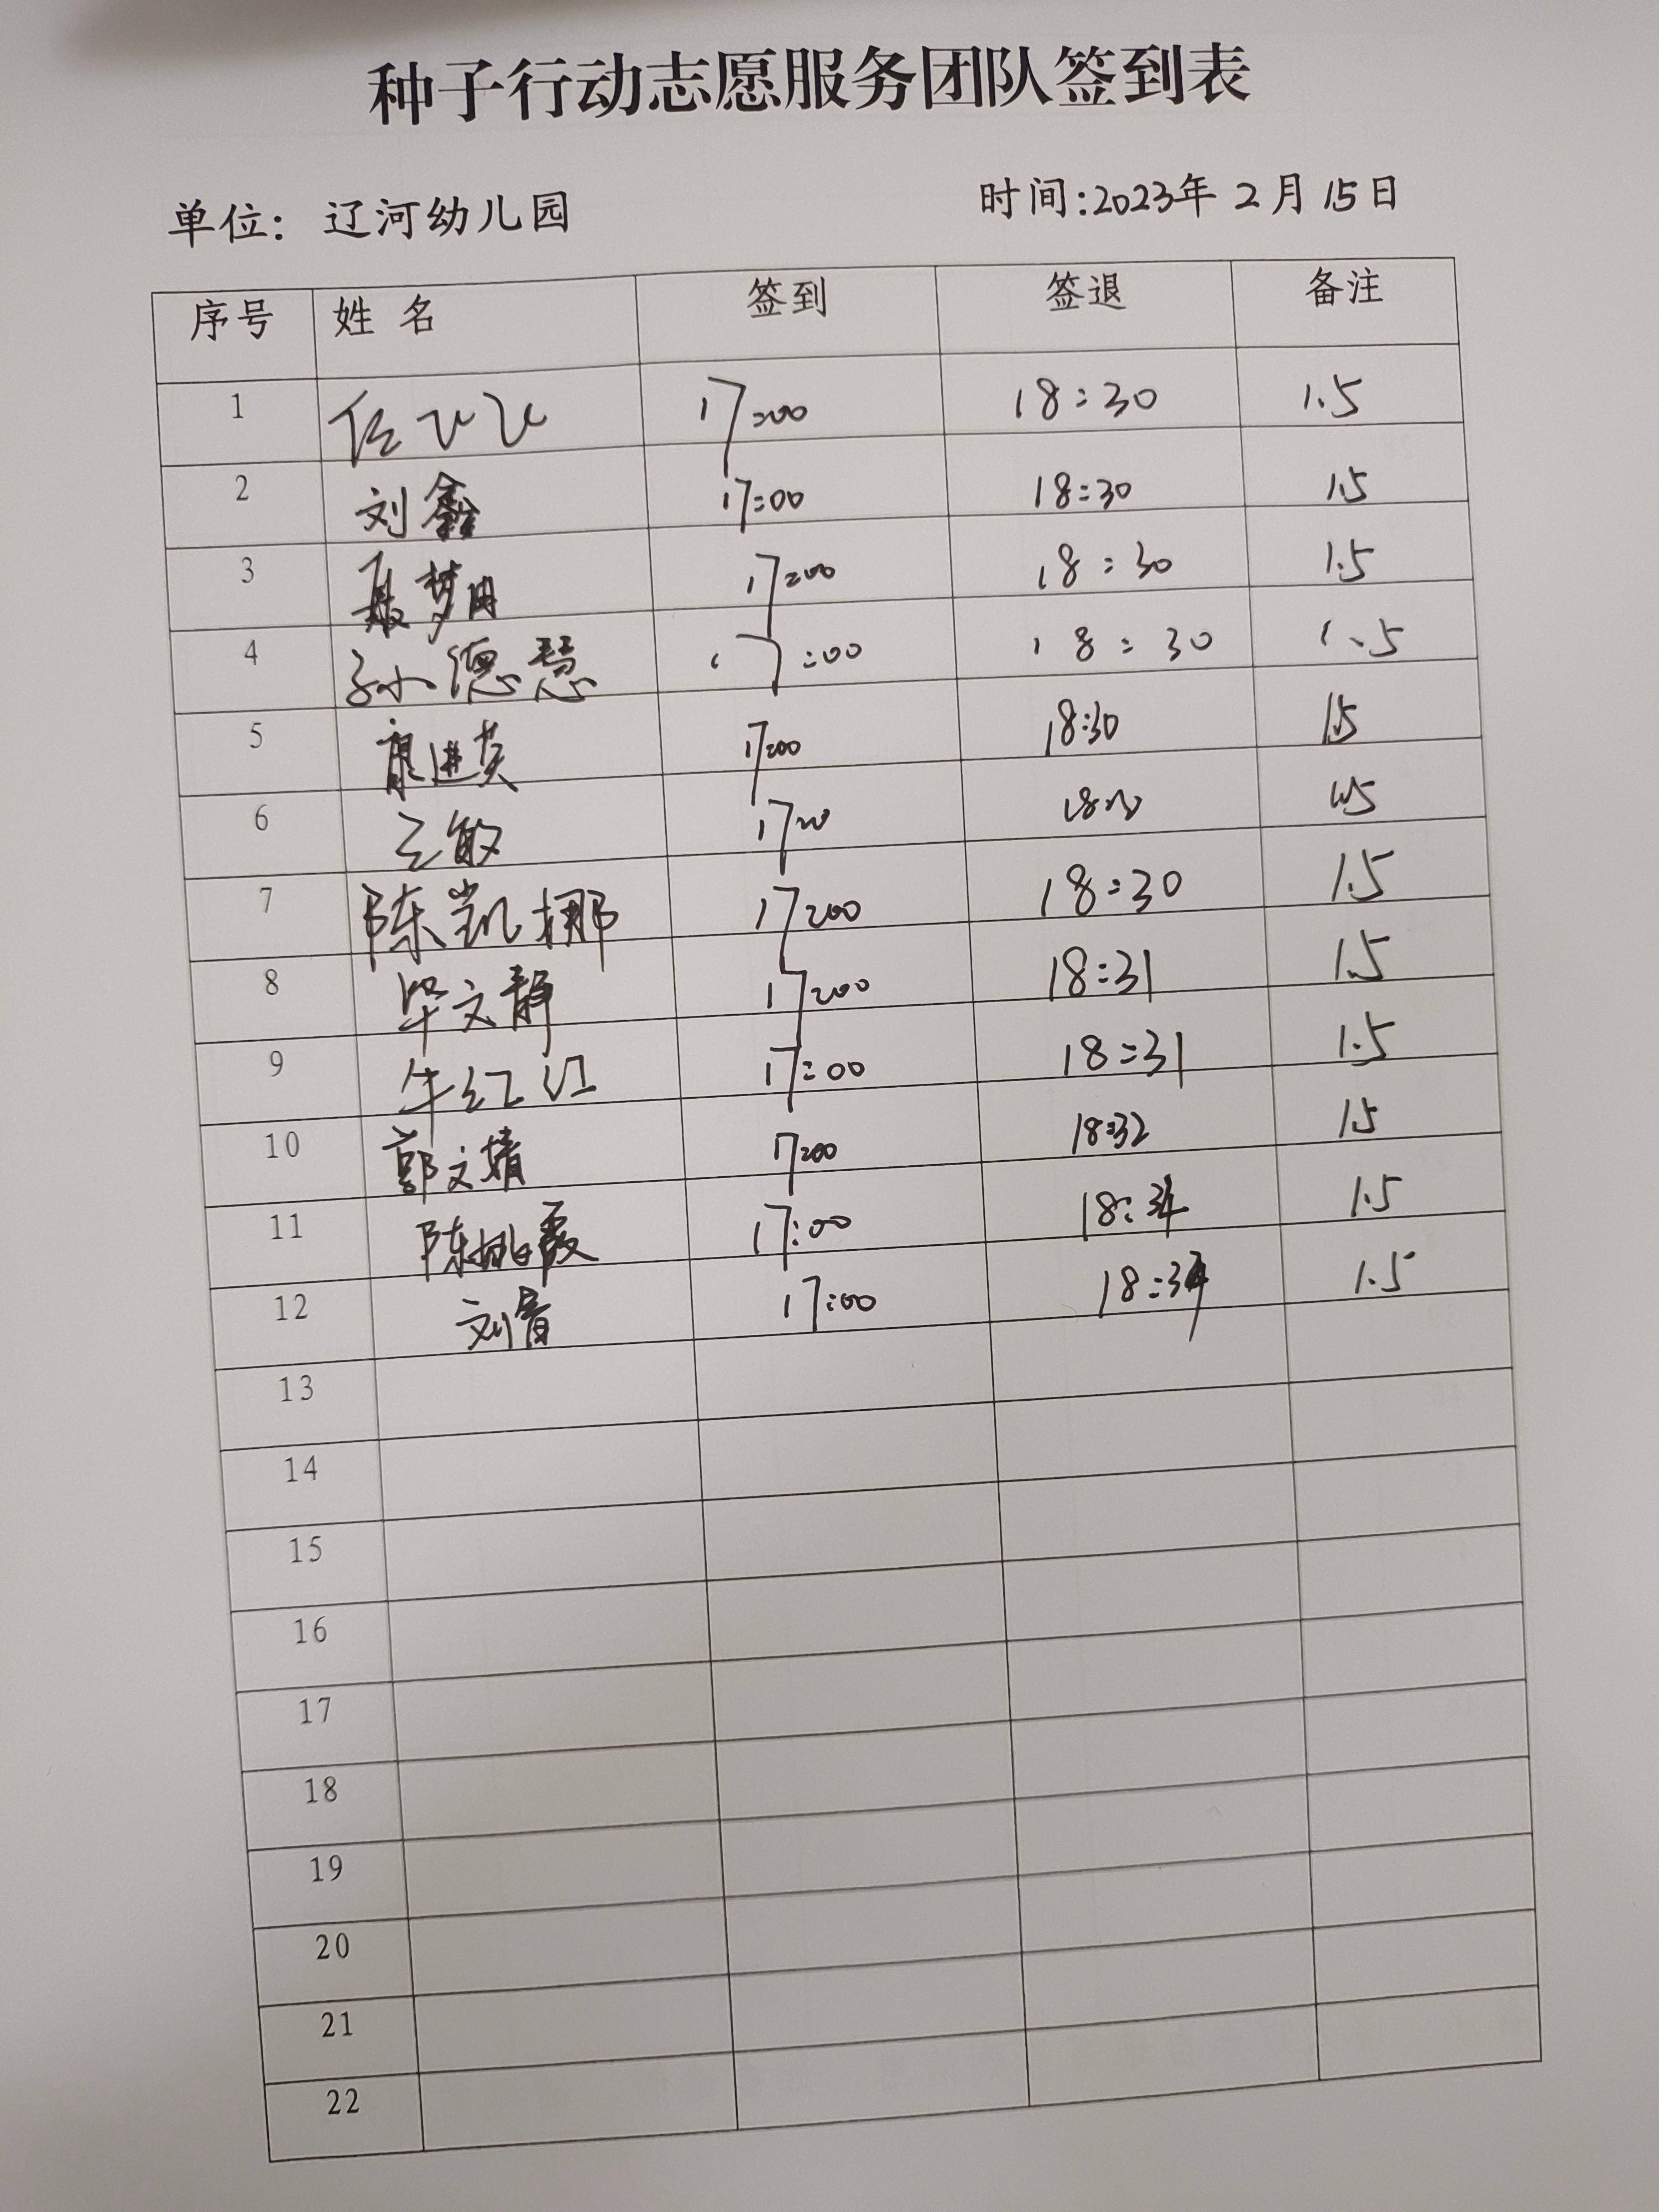 种子行动志愿服务团队签到表
单位：辽河幼儿园 时间:2023年 2 月 15日
序号 姓 名 签到 签退 备注
1 任 17:00 18:30 1.5
2 刘鑫 17:00 18:30 1.5
3 聂梦 17:00 18:30 1.5
4 孙德慧 17:00 18:30 1.5
5 康进英 17:00 18:30 1.5
6 王敏 17:00 18:30 1.5
7 陈凯挪 17:00 18:30 1.5
8 毕文静 17:00 18:31 1.5
9 牛红江 17:00 18:31 1.5
10 郭文婧 17:00 18:32 1.5
11 陈挑霞 17:00 18:34 1.5
12 刘 17:00 18:34 1.5
13
14
15
16
17
18
19
20
21
22